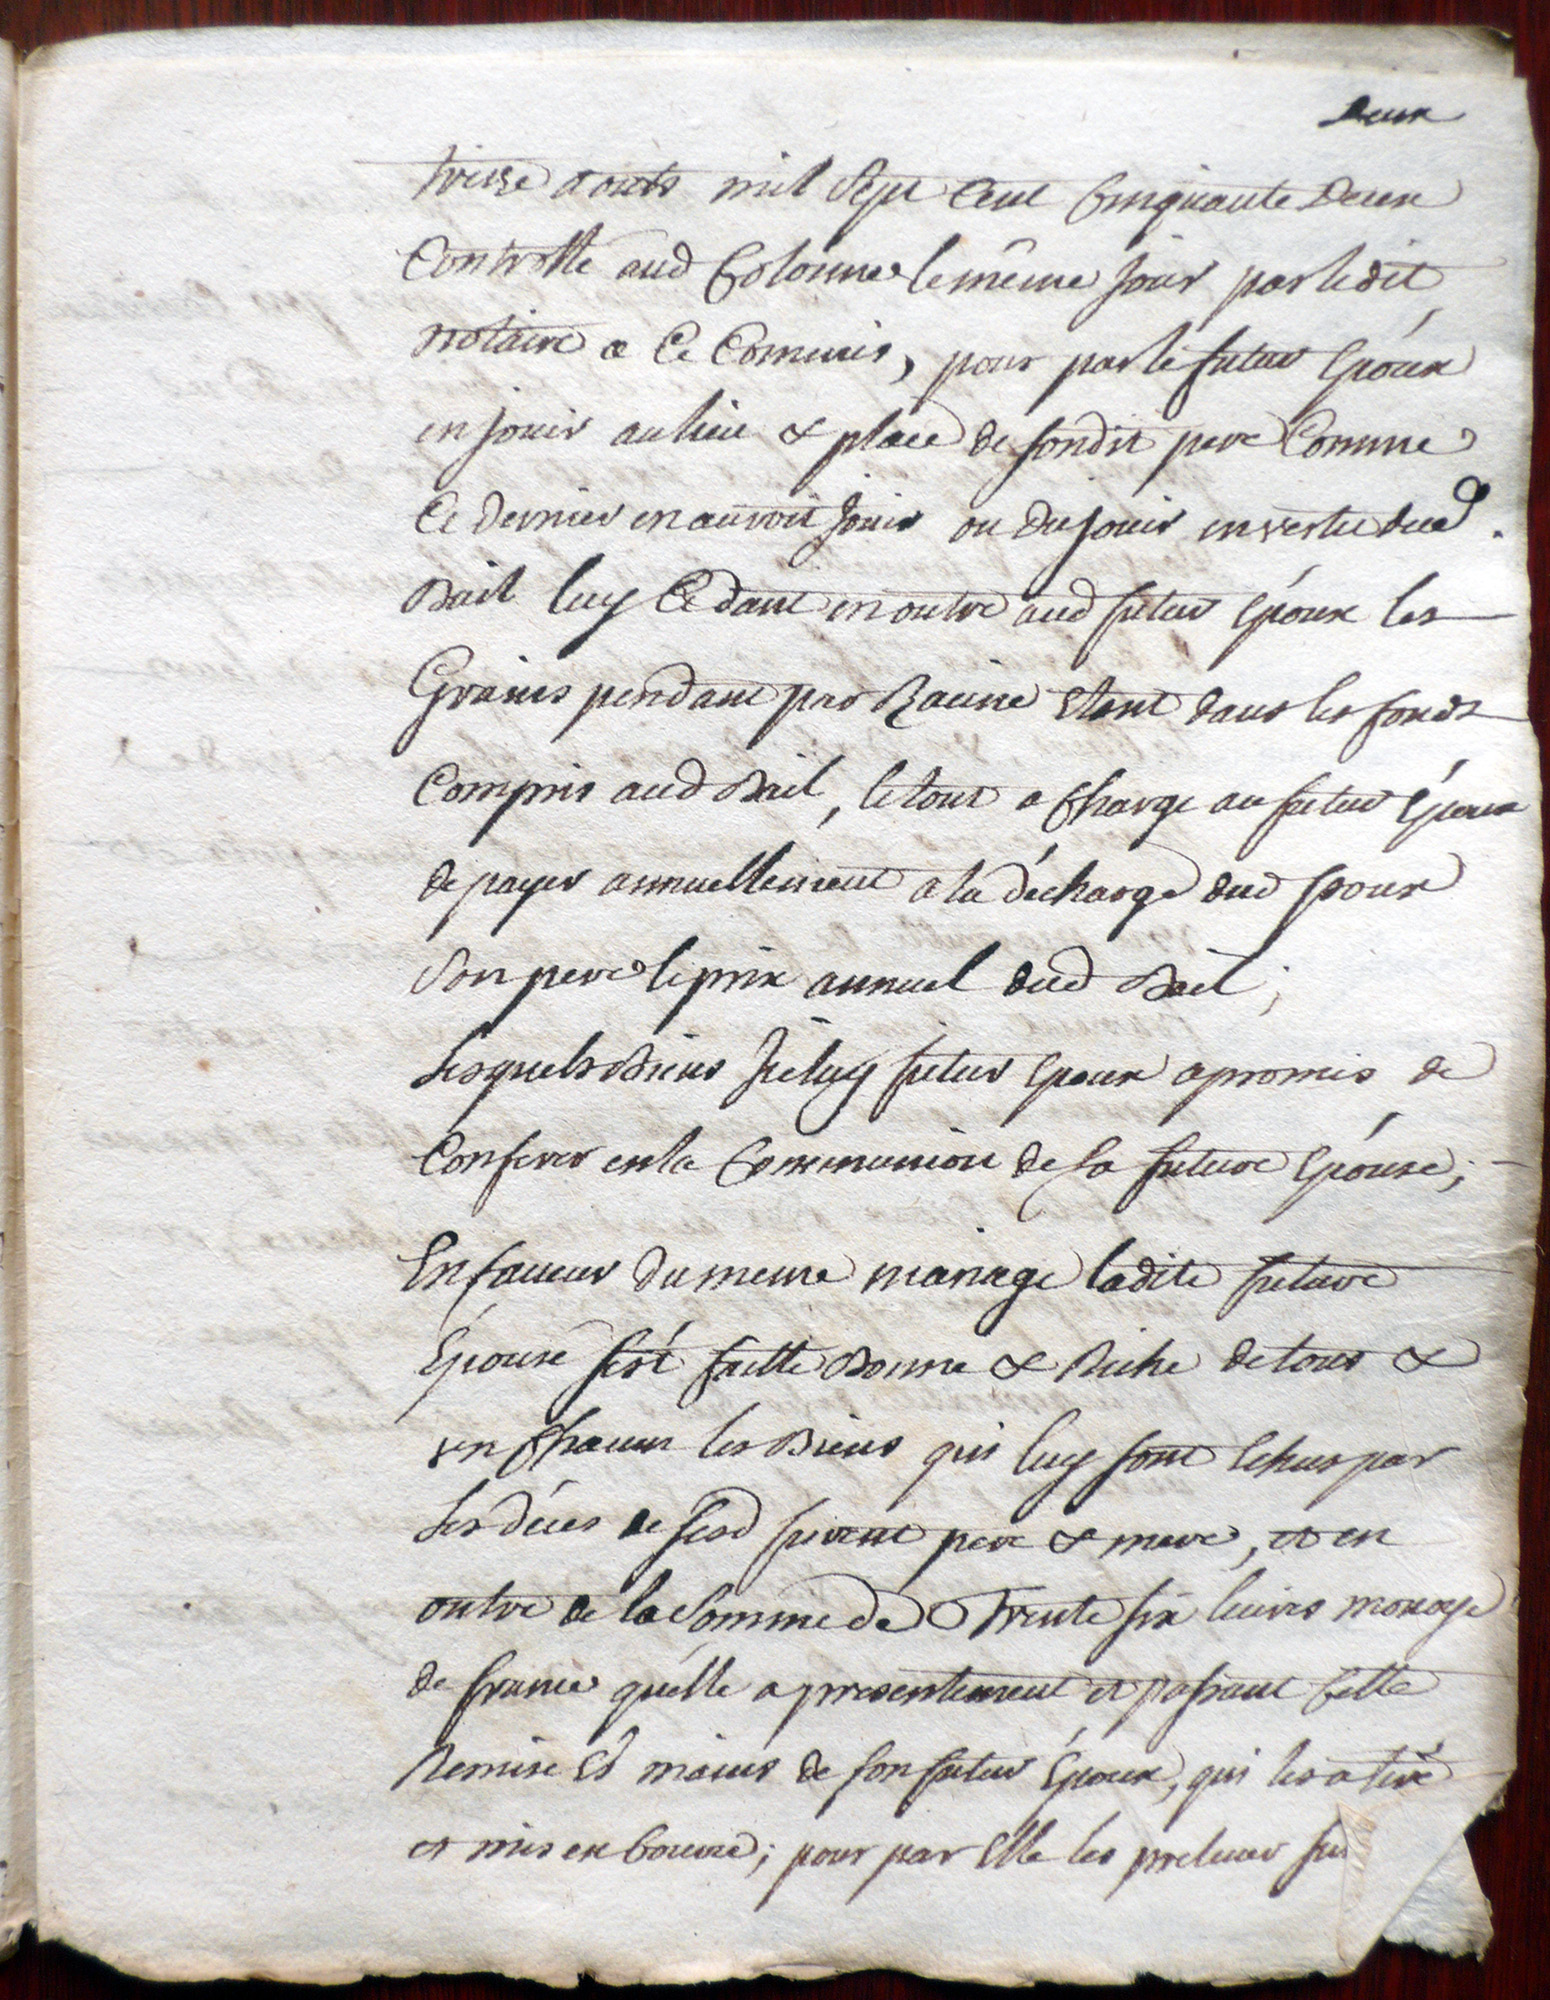 Deux
treize aouts mil sept cent Cinquante Deux
Controllé aud Colonne le même jour par ledit
notaire a Ce Commis, pour par le futur époux
en jouir au lieu & place de sondit pere Comme
Ce dernier en auroit joüis ou du jouir en vertu dud.
Bail luy Cedant en outre aud futur époux les
Grains pendant par Racine étant dans les fonds
Compris aud Bail, le tout a Charge au futur époux
de payer annuellement a la décharge dud pour
Son pere le prix annuel dud Bail;
Lesquels Biens jceluy futur époux a promis de
Conferer en la Communion de la future épouse;
En faveur du meme mariage ladite future
épouse s'est faitte Bonne & Riche de tous &
un Chacun les Biens qui luy sont échus par
Les décès de sesd pere & mere, et en
outre de la Somme de Trente six livres monoye
de france qu'elle a presentement et passant Cette
Remise Es mains de son futur époux, qui les a tiré
et mis en bource; pour par Elle les prelever